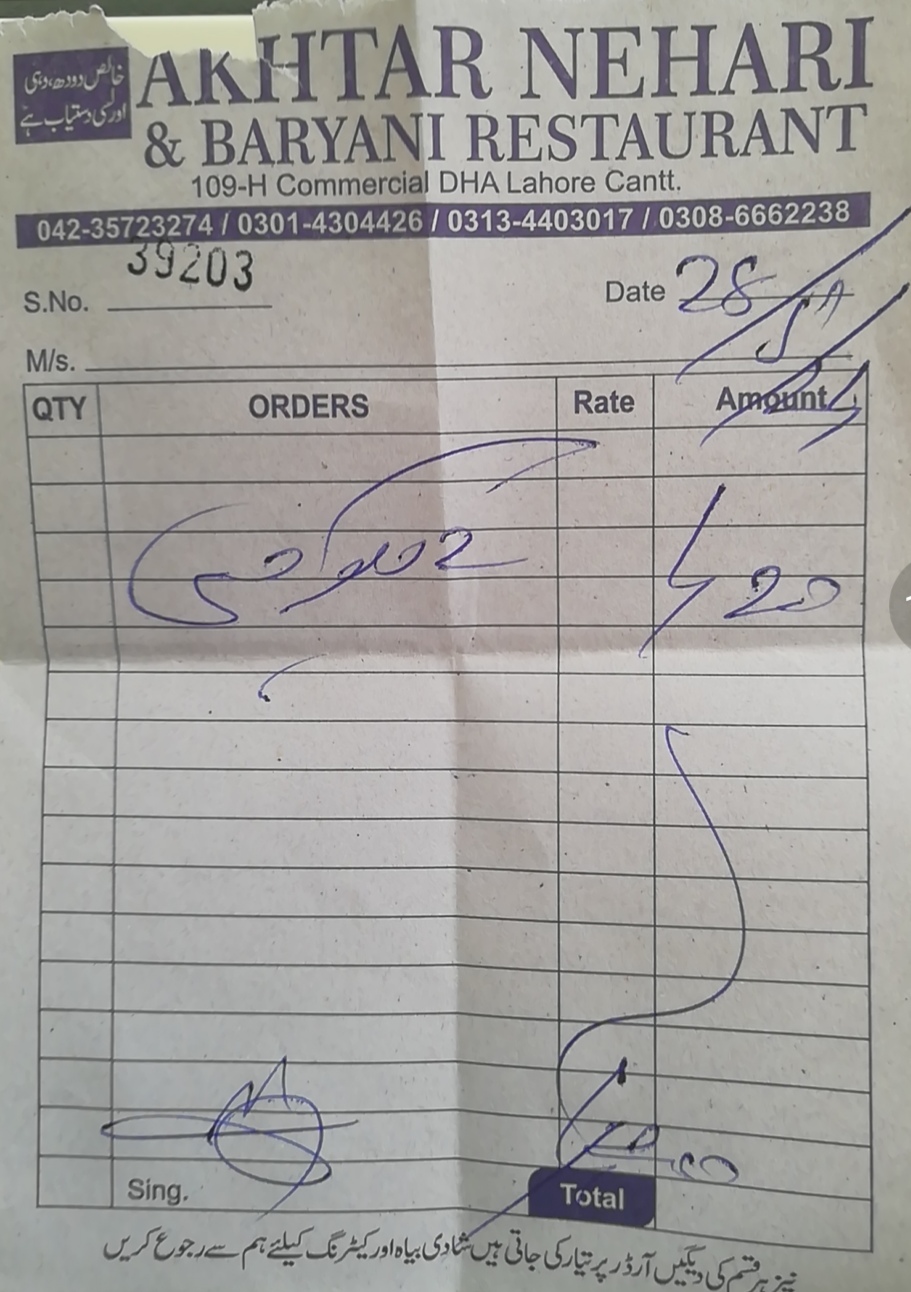 خالص دودھ، دہی
اور لسی دستیاب ہے
AKHTAR NEHARI
& BARYANI RESTAURANT
109-H Commercial DHA Lahore Cantt.
042-35723274 / 0301-4304426 / 0313-4403017 / 0308-6662238
39203
S.No.
Date 28
M/s.
QTY ORDERS Rate Amount
2
20
Sing.
Total
نیز ہر قسم کی دیگیں آرڈر پر تیار کی جاتی ہیں شادی بیاہ اور کیٹرنگ کیلئے ہم سے رجوع کریں